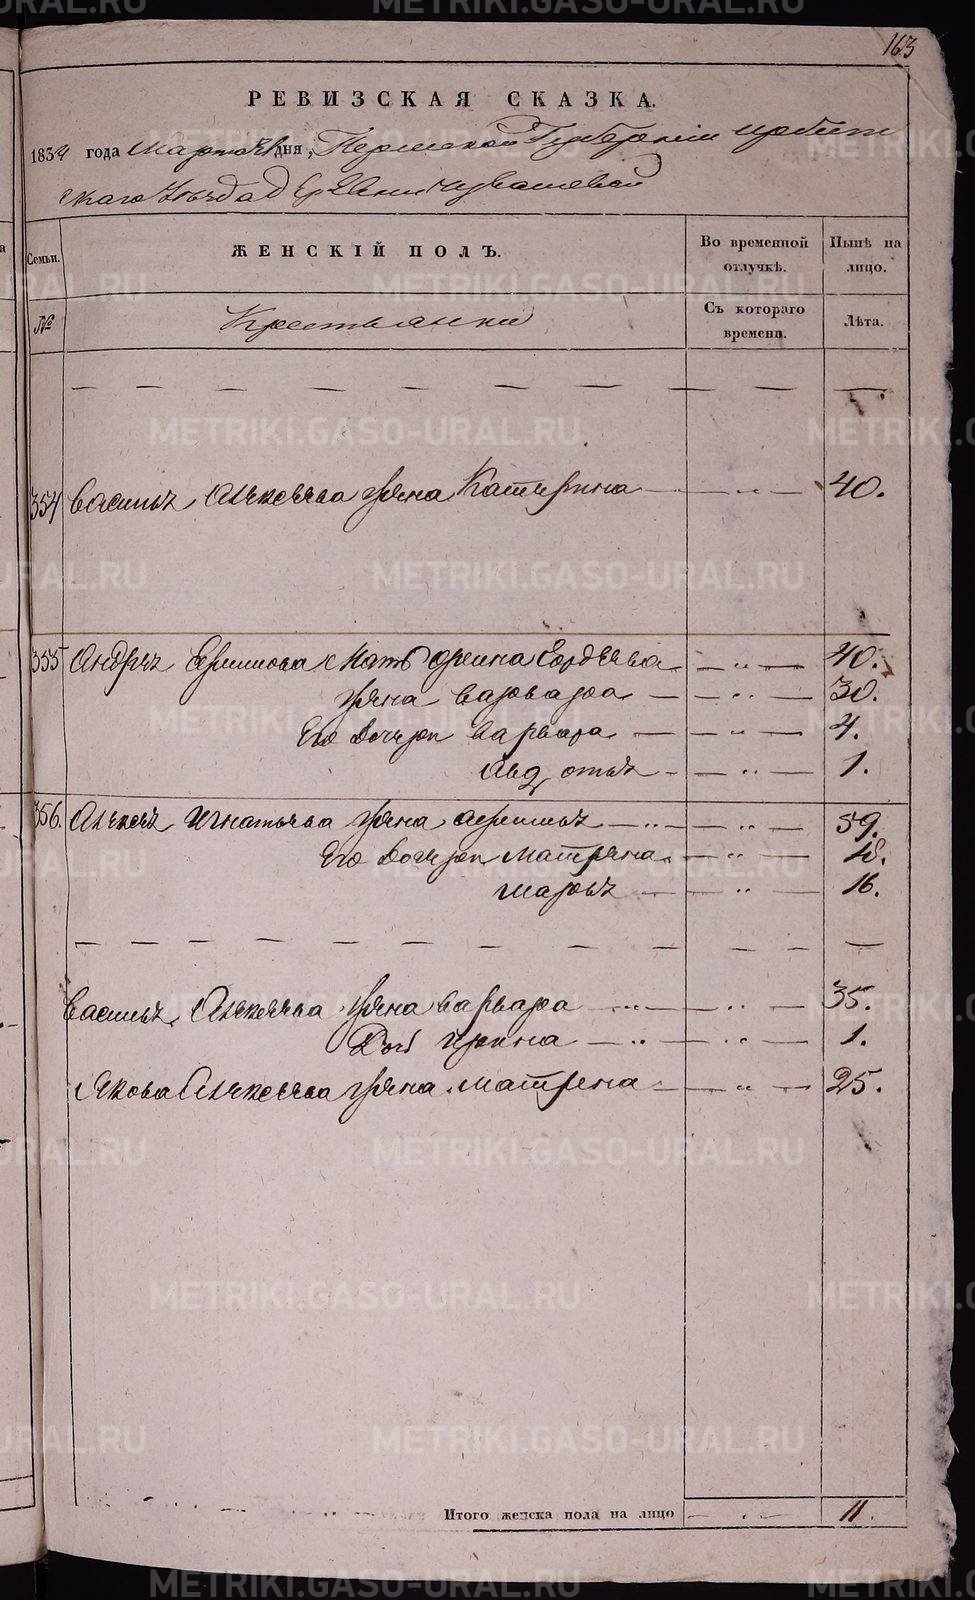 163
РЕВИЗСКАЯ СКАЗКА.
1834 года Марта дня, Пермской Губернии Ирбит
скаго Уезда Д Чувашевой
Семьи. ЖЕНСКІЙ ПОЛЪ. Во временной отлучкѣ. Нынѣ на лицо.
№ Крестьянки Съ котораго времени. Лѣта.
354 Василья Алексеева жена Катерина 40.
355 Андрея мать Гордеева 40.
жена варвара 30.
Его дочери варвара 4.
Авдотья 1.
356. Алексея Игнатьева жена 59.
Его дочери матрена 18.
марья 16.
Василья Алексеева жена варвара 35.
Дочь ирина 1.
Якова Алексеева жена матрена 25.
Итого женска пола на лицо 11.
METRIKI.GASO-URAL.RU